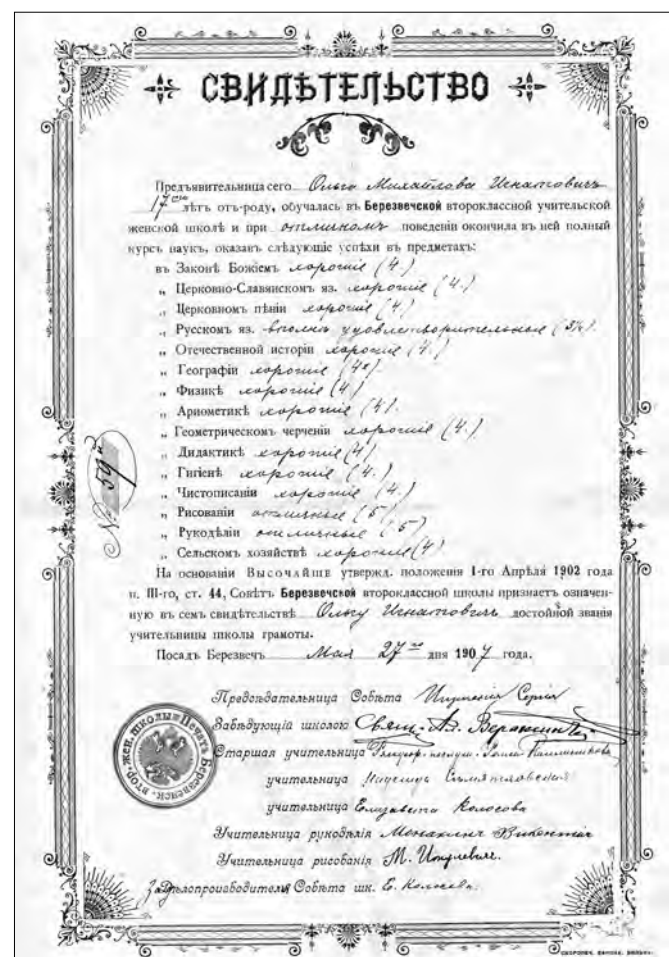 СВИДѢТЕЛЬСТВО
Предъявительница сего Ольга Михайлова Игнатовичъ
17ти лѣтъ отъ-роду, обучалась въ Березвечской второклассной учительской
женской школѣ и при отличномъ поведеніи окончила въ ней полный
курсъ наукъ, оказавъ слѣдующіе успѣхи въ предметахъ:
въ Законѣ Божіемъ хорошіе (4.)
„ Церковно-Славянскомъ яз. хорошіе (4.)
„ Церковномъ пѣніи хорошіе (4)
„ Русскомъ яз. вполнѣ удовлетворительные (3½).
„ Отечественной исторіи хорошіе (4.)
„ Географіи хорошіе (4).
„ Физикѣ хорошіе (4)
„ Ариѳметикѣ хорошіе (4).
„ Геометрическомъ черченіи хорошіе (4.)
„ Дидактикѣ хорошіе (4)
„ Гигіенѣ хорошіе (4.)
„ Чистописаніи хорошіе (4.)
„ Рисованіи отличные (5)
„ Рукодѣліи отличные (5)
„ Сельскомъ хозяйствѣ хорошіе (4)
№ 59й
На основаніи Высочайше утвержд. положенія 1-го Апрѣля 1902 года
п. III-го, ст. 44, Совѣтъ Березвечской второклассной школы признаетъ означен-
ную въ семъ свидѣтельствѣ Ольгу Игнатовичъ достойной званія
учительницы школы грамоты.
Посадъ Березвечъ Мая 27го дня 1907 года.
Предсѣдательница Совѣта Игуменія Сергія
Завѣдующій школою Свящ. Ал.
Старшая учительница
учительница Надежда
учительница Елизавета Колосова
Учительница рукодѣлія Монахиня
Учительница рисованія М.
За Дѣлопроизводителя Совѣта шк. Е. Колосова.
Печать Березвечск. втор. жен. школы
СКОРОПЕЧ.